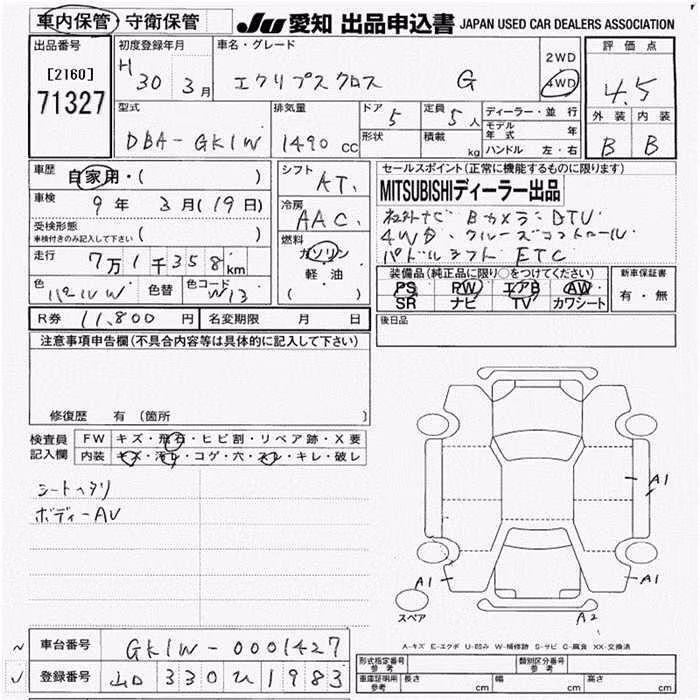 車内保管・守衛保管 JU 愛知 出品申込書 JAPAN USED CAR DEALERS ASSOCIATION
出品番号
[2160]
71327
初度登録年月
H 30 3月
車名・グレード
エクリプスクロス G
2WD
4WD
評価点
4.5
型式
DBA-GK1W
排気量
1490 cc
ドア
5
形状
定員
5人
積載
kg
ディーラー・並行
モデル年式 年
ハンドル 左・右
外装 内装
B B
車歴
自家用・( )
車検
9年 3月(19日)
受検形態
車検付きのみ記入して下さい ( )
走行
7万1千358km
色
パールW
色替
色コード
W13
シフト
AT.
冷房
AAC.
燃料
ガソリン
軽・油
( )
セールスポイント(正常に機能するものに限ります)
MITSUBISHIディーラー出品
ナビ Bカメラ DTV
4WD、クルーズコントロール
パドルシフト ETC
装備品(純正品に限り○をつけてください)
PS PW エアB AW
SR ナビ TV カワシート
新車保証書
有・無
R券 11,800円 名変期限 月 日
後日品
注意事項申告欄(不具合内容等は具体的に記入して下さい)
修復歴 有 (箇所 )
検査員
記入欄
FW キズ・飛石・ヒビ割・リペア跡・X要
内装 キズ・汚レ・コゲ・穴・スレ・キレ・破レ
シートヘタリ
ボディーAU
A1
A1
A1
スペア
A2
A-キズ E-エクボ U-凹み W-補修跡 S-サビ C-腐食 XX-交換済
車台番号 GK1W-0001427
登録番号 山口 330 ひ 1983
形式指定番号
参考
類別区分番号
参考
車庫証明用
参考
長さ cm 幅 cm 高さ cm